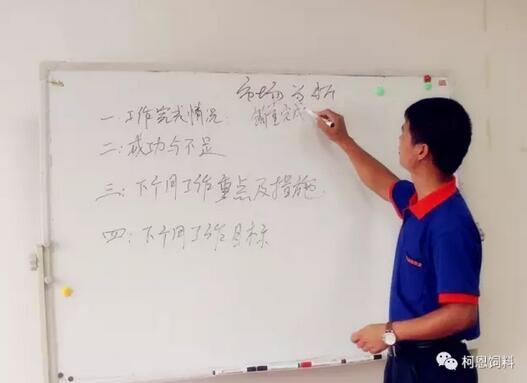 市场分析
一:工作完成情况: 销量完成
二:成功与不足
三:下个月工作重点及措施
四:下个月工作目标
柯恩饲料